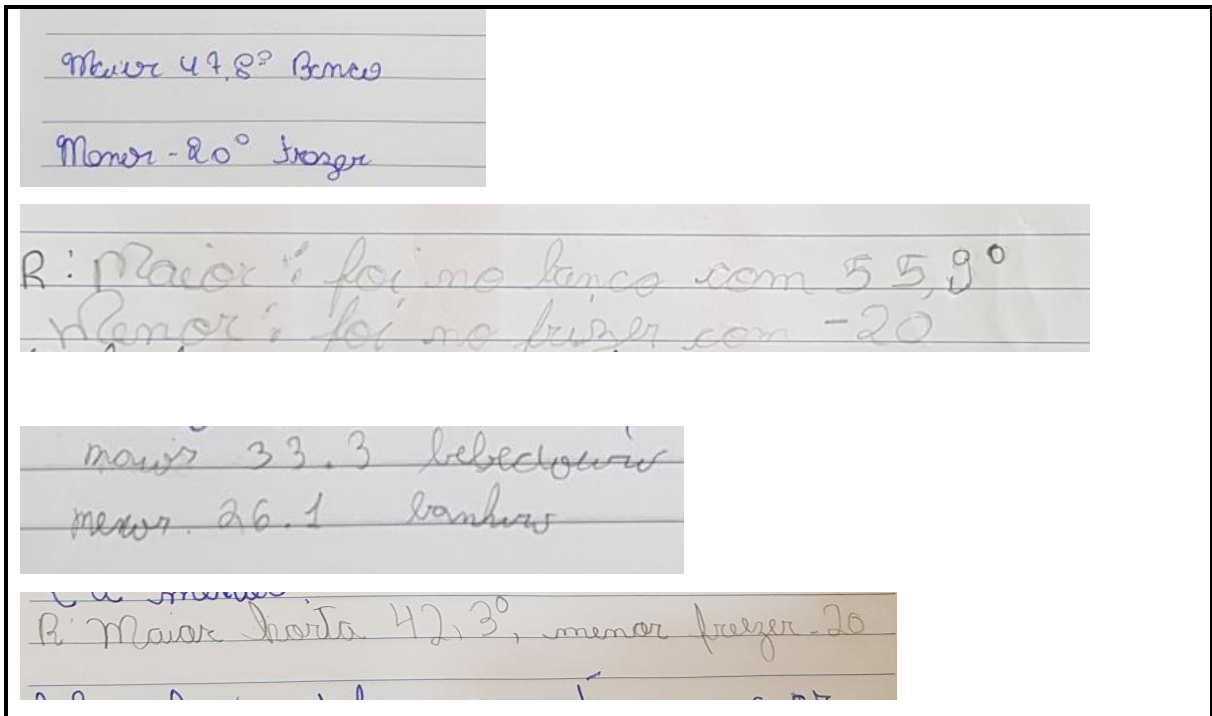 Maior 47,8° Banco
Menor -20° frozer
R: Maior: foi no banco com 55,9°
Menor: foi no frizer com -20
maior 33.3 bebedouro
menor. 26.1 banheiro
R: Maior horta 42,3°, menor freezer -20